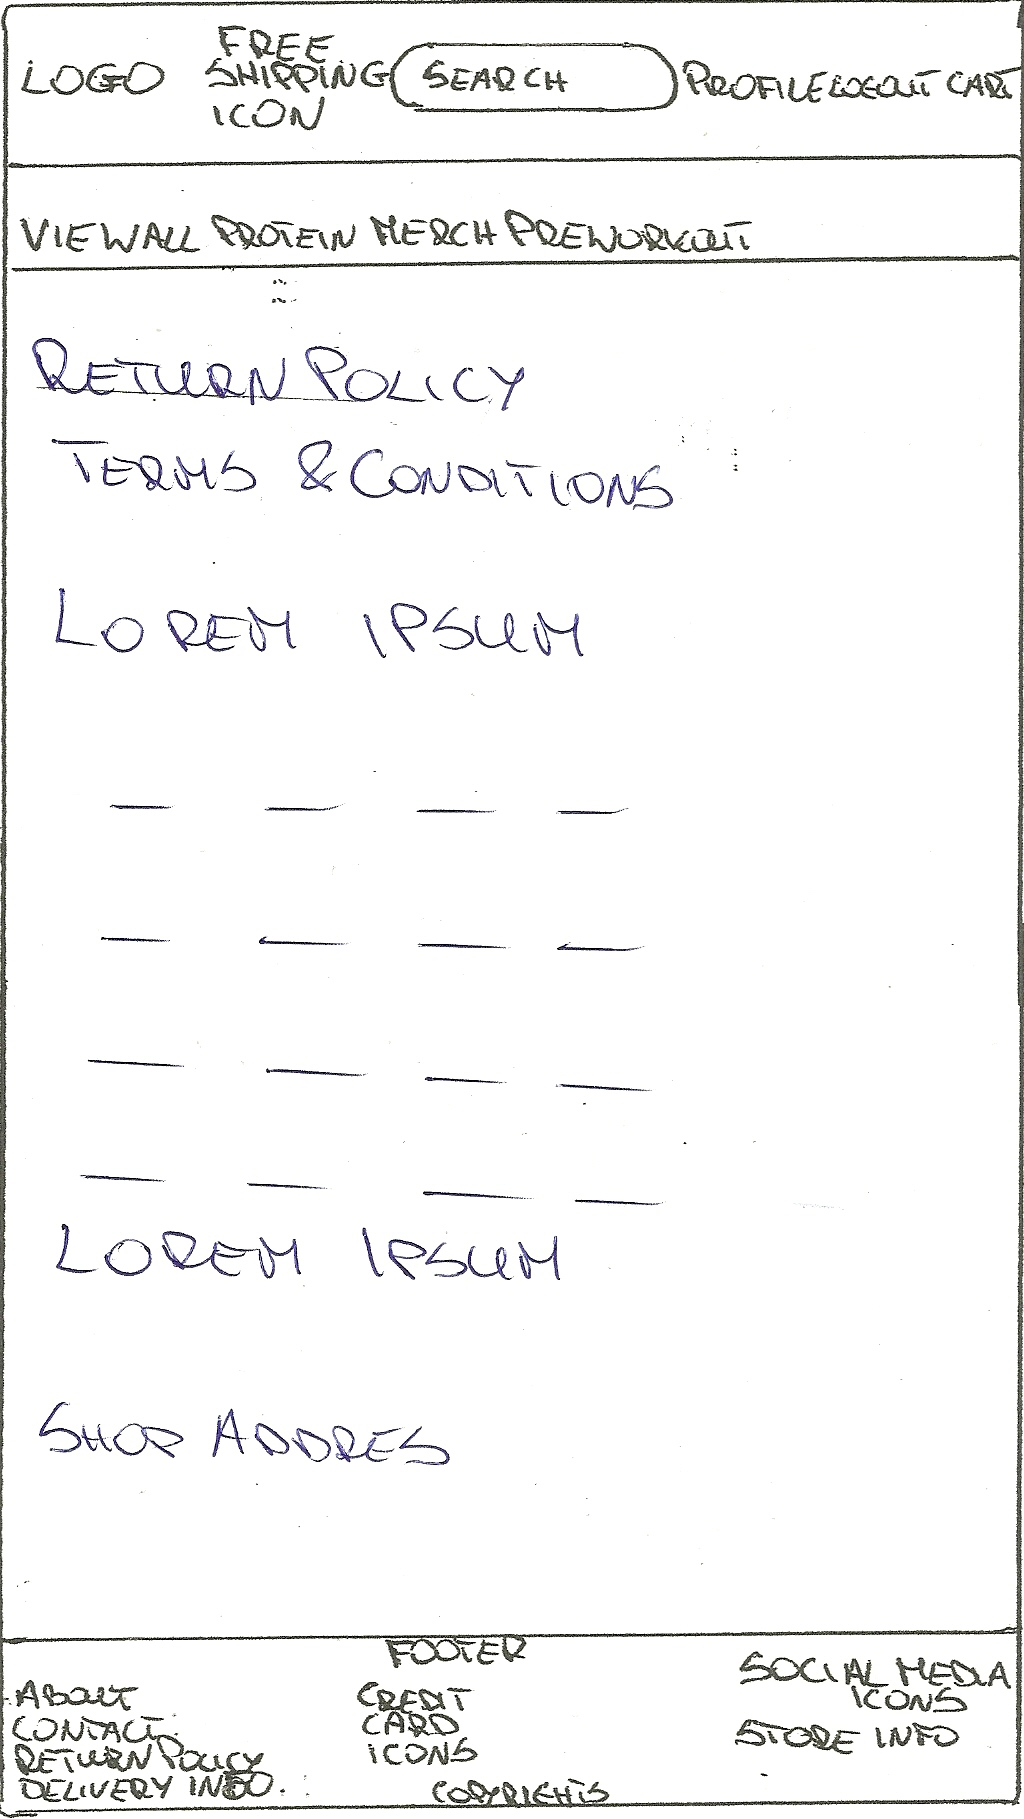 LOGO
FREE
SHIPPING
ICON
SEARCH
PROFILE LOGOUT CART
VIEW ALL PROTEIN MERCH PREWORKOUT
RETURN POLICY
TERMS & CONDITIONS
LOREM IPSUM
LOREM IPSUM
SHOP ADDRES
FOOTER
ABOUT
CONTACT
RETURN POLICY
DELIVERY INFO.
CREDIT
CARD
ICONS
COPYRIGHTS
SOCIAL MEDIA
ICONS
STORE INFO